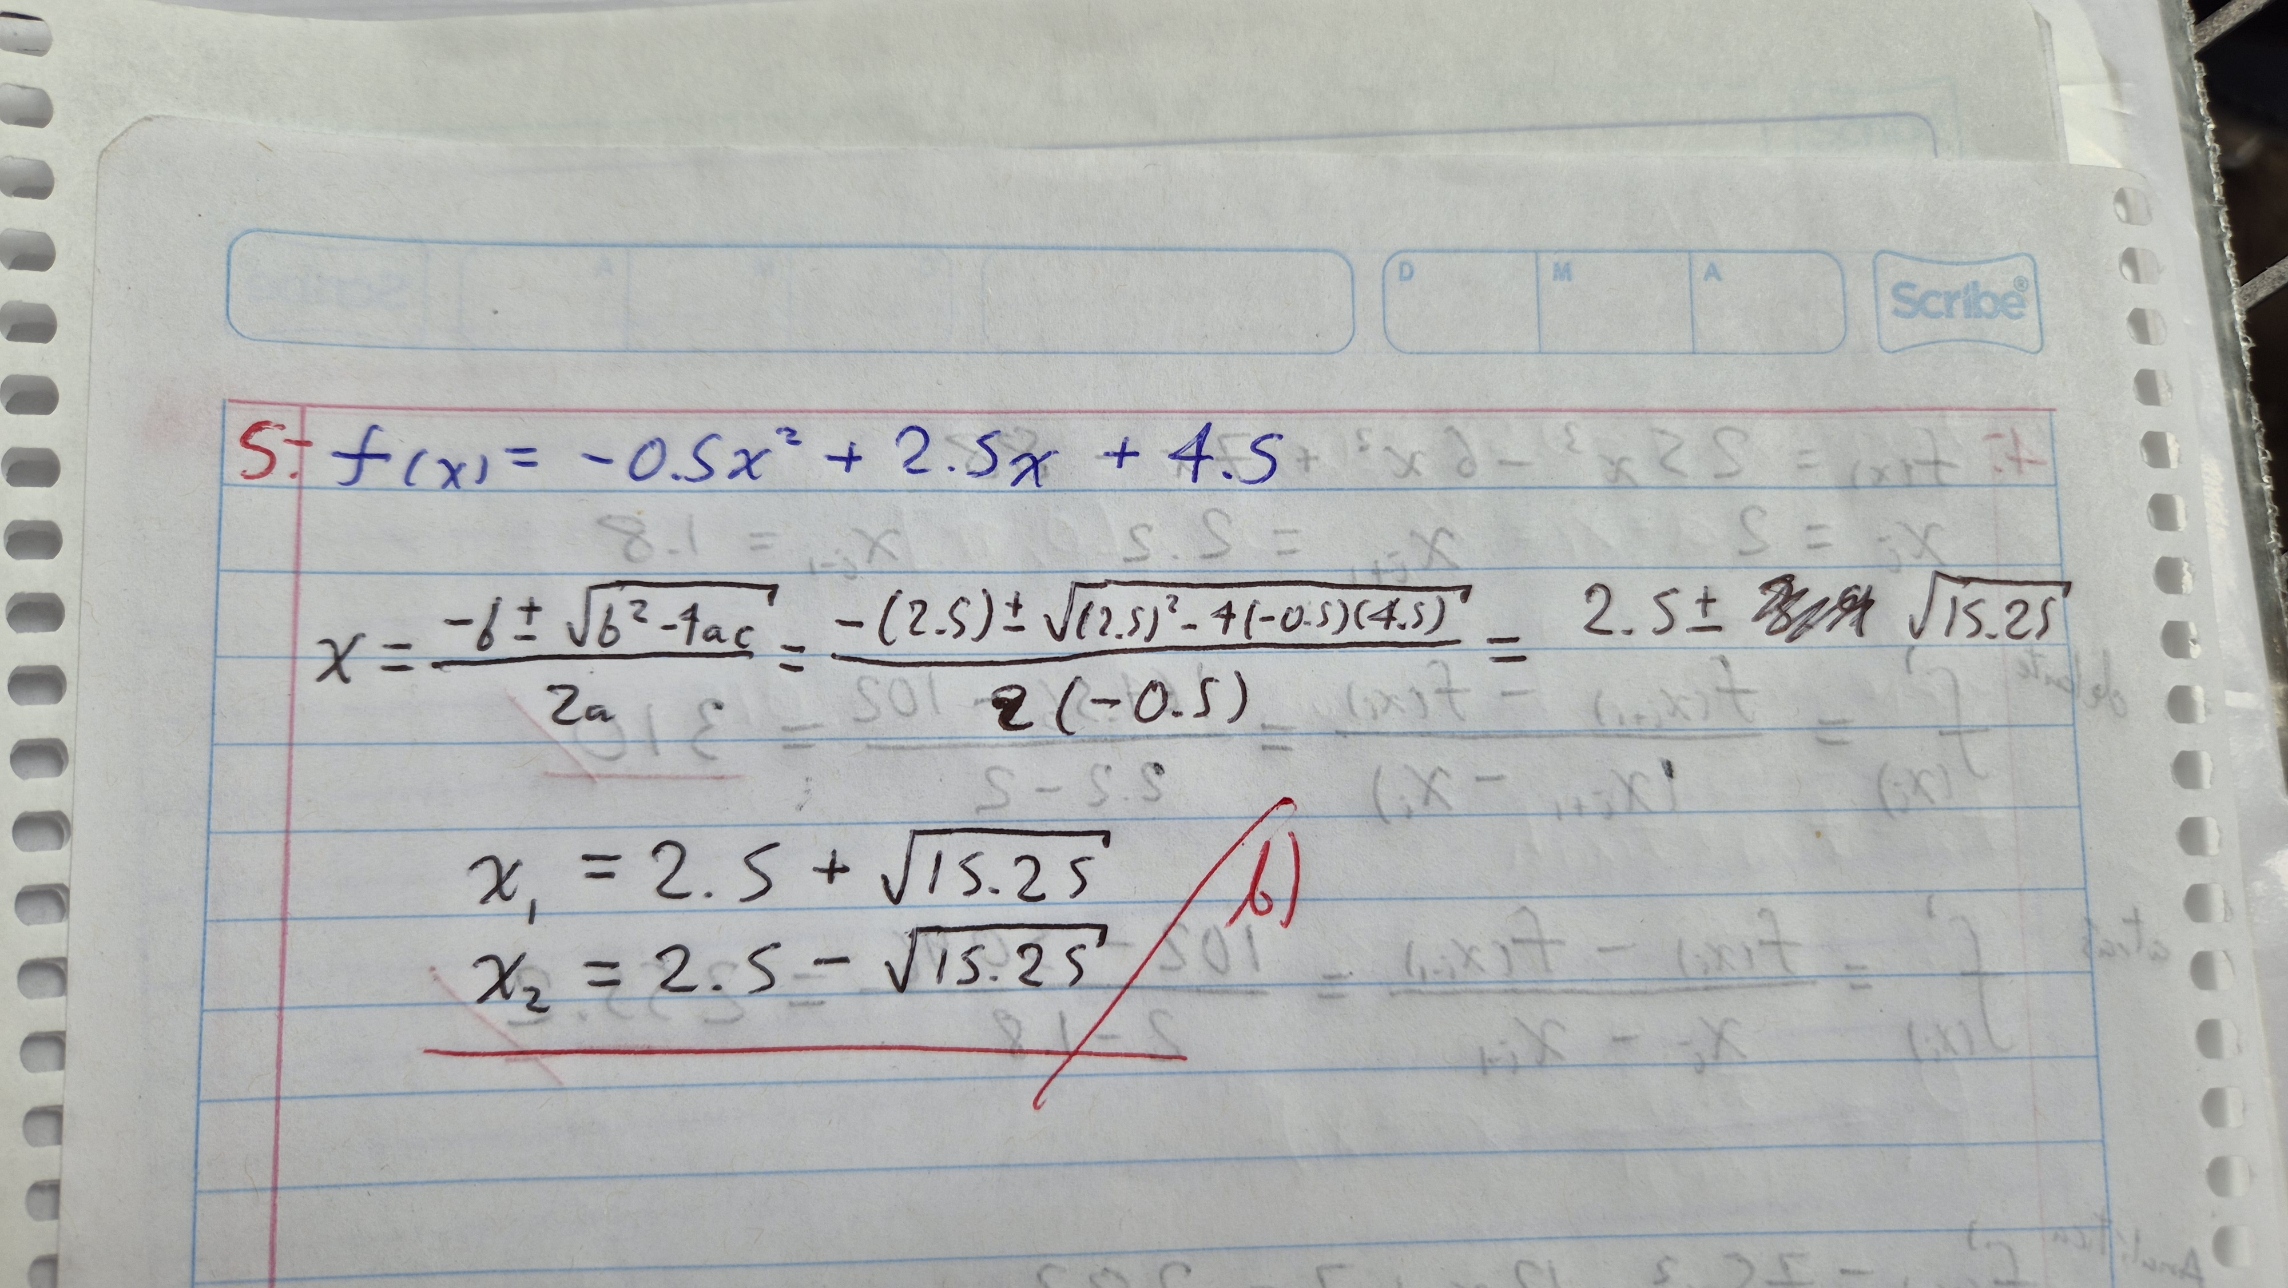 D M A Scribe®
5.- f(x) = -0.5x² + 2.5x + 4.5
x = (-b ± √(b²-4ac))/(2a) = (-(2.5) ± √((2.5)²-4(-0.5)(4.5)))/(2(-0.5)) = 2.5 ± √15.25
x₁ = 2.5 + √15.25
b)
x₂ = 2.5 - √15.25